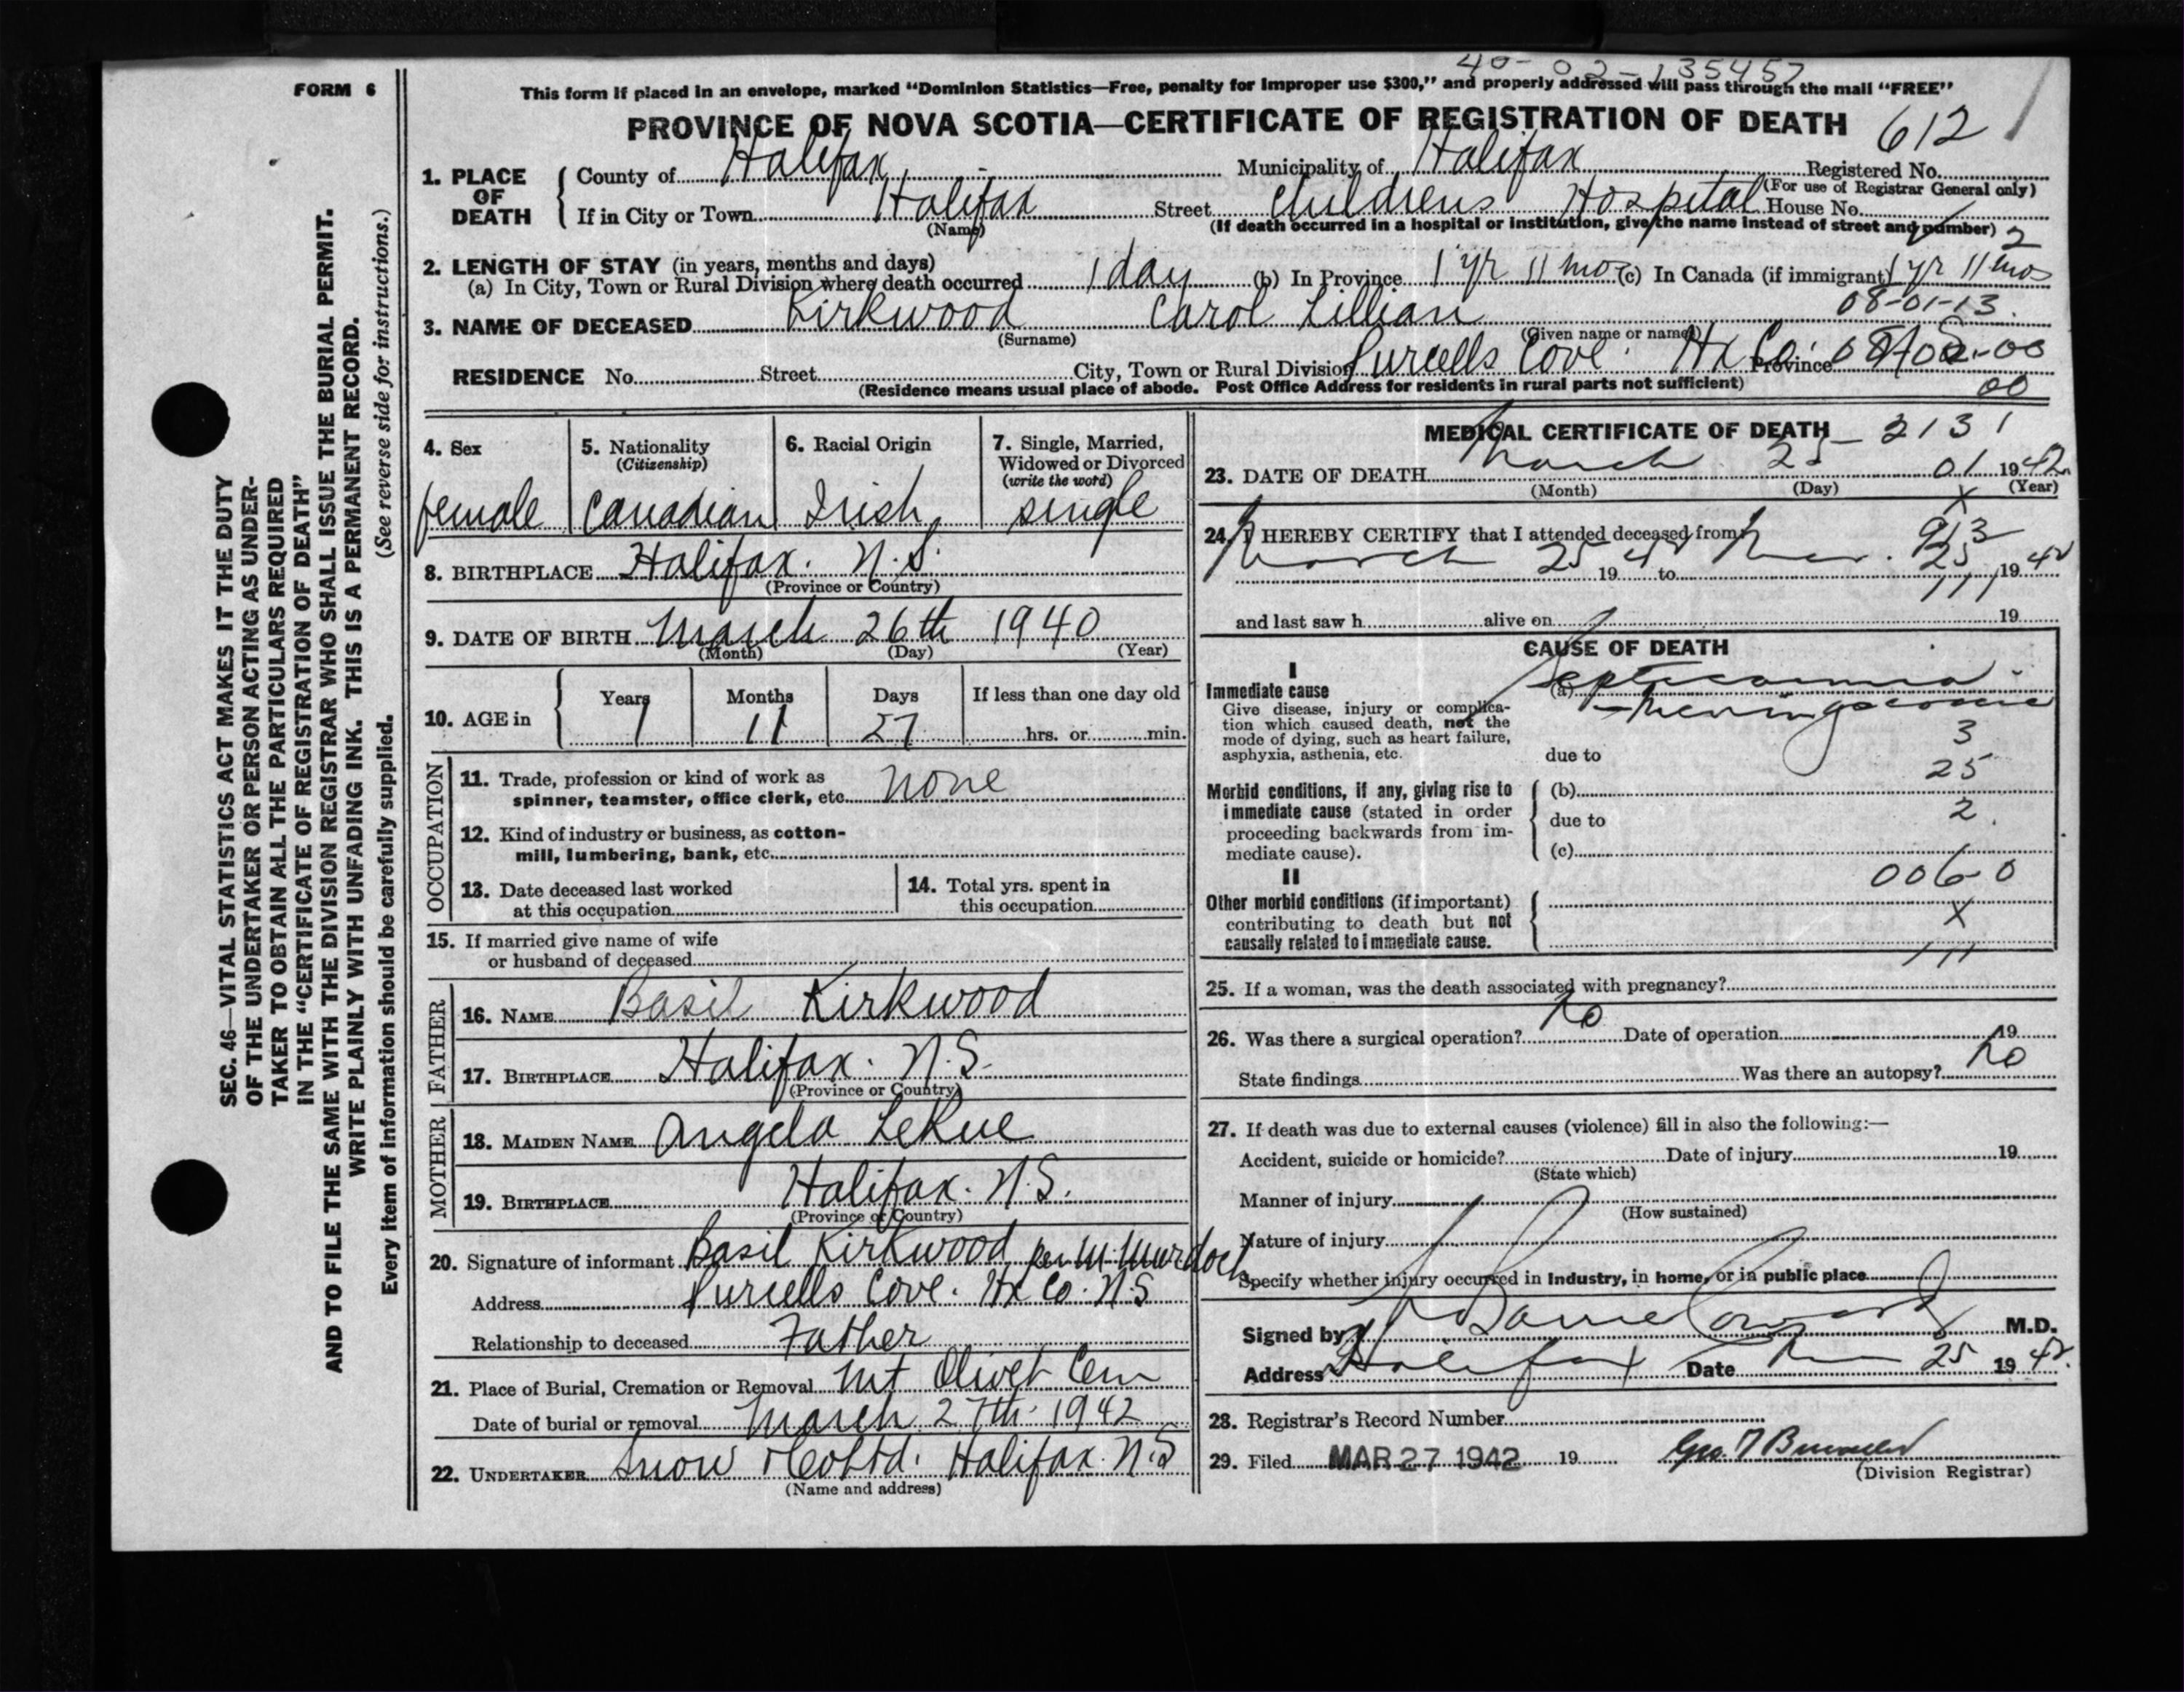 40-02-135457
FORM 6
This form if placed in an envelope, marked "Dominion Statistics—Free, penalty for improper use $300," and properly addressed will pass through the mail "FREE"
PROVINCE OF NOVA SCOTIA—CERTIFICATE OF REGISTRATION OF DEATH 612
1. PLACE OF DEATH County of Halifax Municipality of Halifax Registered No.
(For use of Registrar General only)
If in City or Town Halifax Street Childrens Hospital House No.
(Name) (If death occurred in a hospital or institution, give the name instead of street and number) 2
2. LENGTH OF STAY (in years, months and days)
(a) In City, Town or Rural Division where death occurred 1 day (b) In Province 1 yr 11 mos (c) In Canada (if immigrant) 1 yr 11 mos
08-01-13.
3. NAME OF DECEASED Kirkwood Carol Lillian
(Surname) (Given name or names)
RESIDENCE No. Street City, Town or Rural Division Purcells Cove. Hx Co. Province
(Residence means usual place of abode. Post Office Address for residents in rural parts not sufficient) 00
4. Sex 5. Nationality (Citizenship) 6. Racial Origin 7. Single, Married, Widowed or Divorced (write the word)
female Canadian Irish single
8. BIRTHPLACE Halifax. N.S.
(Province or Country)
9. DATE OF BIRTH March 26th 1940
(Month) (Day) (Year)
10. AGE in Years Months Days If less than one day old
1 11 27 hrs. or min.
OCCUPATION
11. Trade, profession or kind of work as
spinner, teamster, office clerk, etc. none
12. Kind of industry or business, as cotton-
mill, lumbering, bank, etc.
13. Date deceased last worked
at this occupation
14. Total yrs. spent in
this occupation
15. If married give name of wife
or husband of deceased
FATHER
16. NAME Basil Kirkwood
17. BIRTHPLACE Halifax. N.S.
(Province or Country)
MOTHER
18. MAIDEN NAME Angela LeRue
19. BIRTHPLACE Halifax. N.S.
(Province or Country)
20. Signature of informant Basil Kirkwood per M. Murdoch
Address Purcells Cove. Hx Co. N.S
Relationship to deceased Father
21. Place of Burial, Cremation or Removal Mt Olivet Cem
Date of burial or removal March 27th 1942
22. UNDERTAKER Snow & Co Ltd. Halifax. N.S
(Name and address)
MEDICAL CERTIFICATE OF DEATH 2131
23. DATE OF DEATH March 25 01 1942
(Month) (Day) (Year)
X
24. I HEREBY CERTIFY that I attended deceased from 913
March 25 1942 to Mar. 25 1942
111
and last saw h alive on 19
CAUSE OF DEATH
I
Immediate cause
Give disease, injury or complica-
tion which caused death, not the
mode of dying, such as heart failure,
asphyxia, asthenia, etc.
(a) Septicaemia -
due to
3
25
2.
Morbid conditions, if any, giving rise to
immediate cause (stated in order
proceeding backwards from im-
mediate cause).
(b)
due to
(c)
0060
X
111
II
Other morbid conditions (if important)
contributing to death but not
causally related to immediate cause.
25. If a woman, was the death associated with pregnancy?
26. Was there a surgical operation? No Date of operation 19
State findings Was there an autopsy? No
27. If death was due to external causes (violence) fill in also the following:—
Accident, suicide or homicide? Date of injury 19
(State which)
Manner of injury
(How sustained)
Nature of injury
Specify whether injury occurred in industry, in home, or in public place
Signed by M.D.
Address Halifax Date Mar 25 1942
28. Registrar's Record Number
29. Filed MAR 27 1942 19
(Division Registrar)
SEC. 46—VITAL STATISTICS ACT MAKES IT THE DUTY
OF THE UNDERTAKER OR PERSON ACTING AS UNDER-
TAKER TO OBTAIN ALL THE PARTICULARS REQUIRED
IN THE "CERTIFICATE OF REGISTRATION OF DEATH"
AND TO FILE THE SAME WITH THE DIVISION REGISTRAR WHO SHALL ISSUE THE BURIAL PERMIT.
WRITE PLAINLY WITH UNFADING INK. THIS IS A PERMANENT RECORD.
(See reverse side for instructions.)
Every item of information should be carefully supplied.